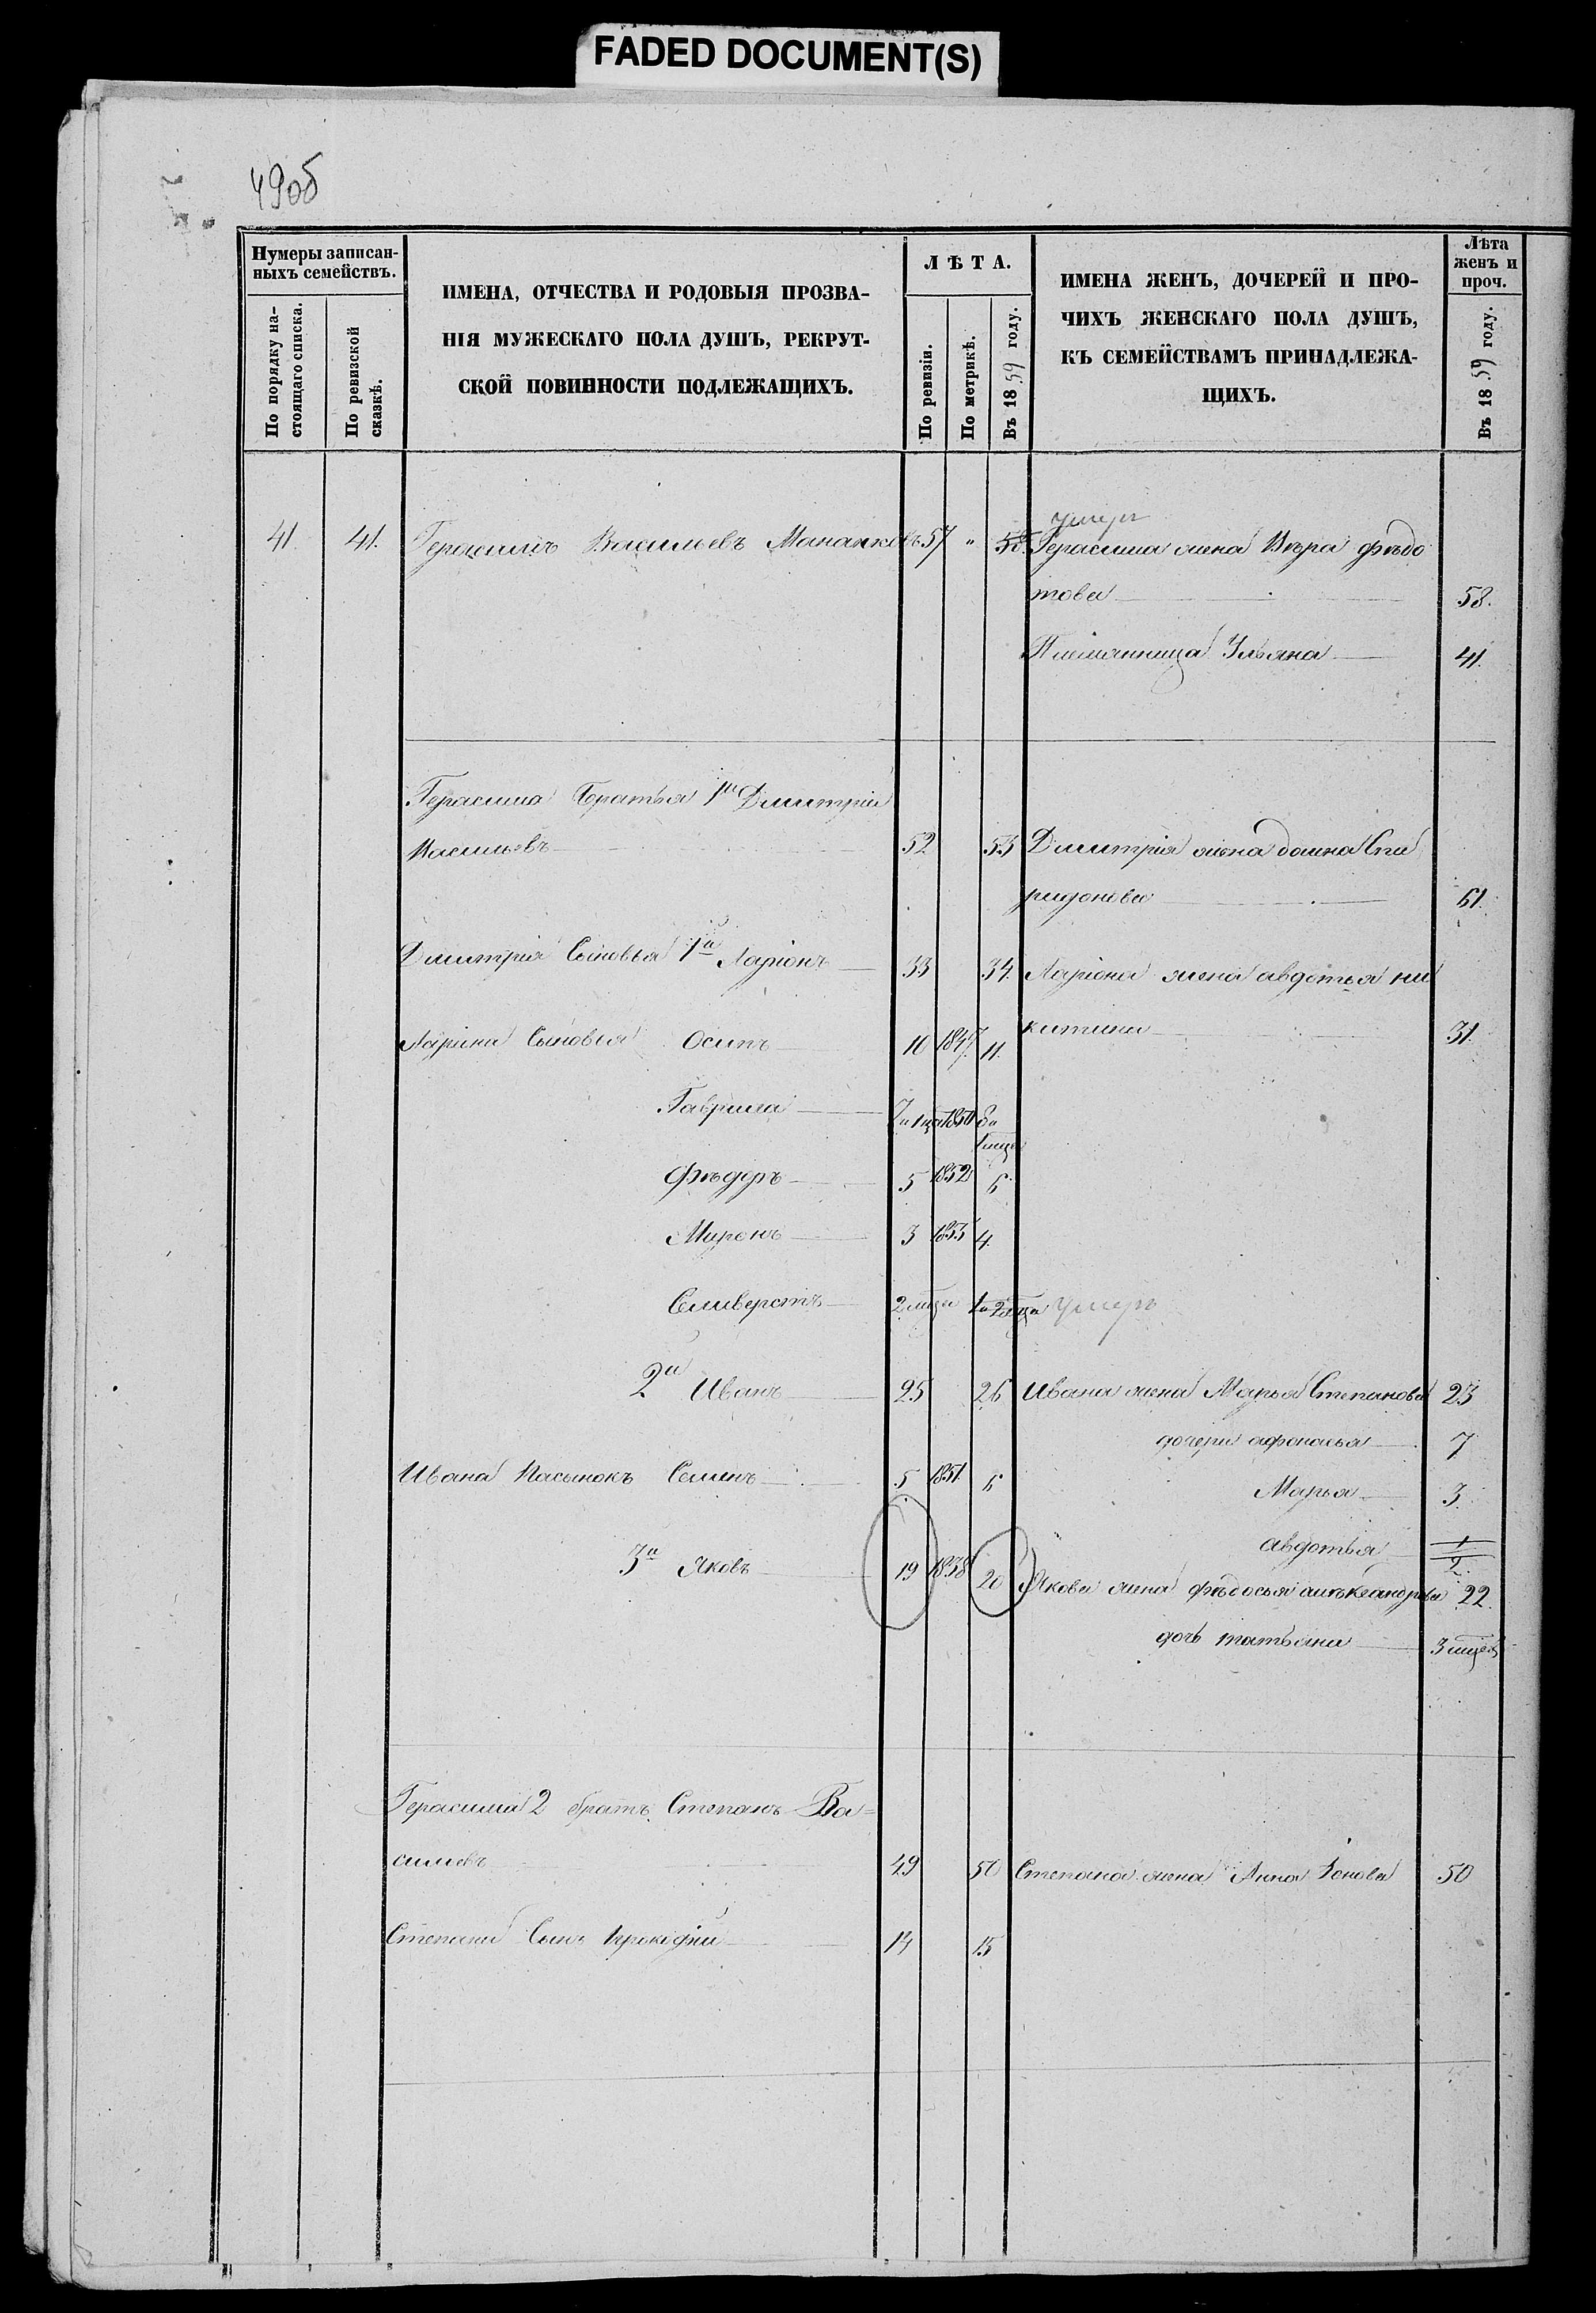 FADED DOCUMENT(S)
49об
Нумеры записан-
ныхъ семействъ.
По порядку на-
стоящаго списка.
По ревизской
сказкѣ.
ИМЕНА, ОТЧЕСТВА И РОДОВЫЯ ПРОЗВА-
НІЯ МУЖЕСКАГО ПОЛА ДУШЪ, РЕКРУТ-
СКОЙ ПОВИННОСТИ ПОДЛЕЖАЩИХЪ.
ЛѢТА.
По ревизіи.
По метрикѣ.
Въ 1859 году.
ИМЕНА ЖЕНЪ, ДОЧЕРЕЙ И ПРО-
ЧИХЪ ЖЕНСКАГО ПОЛА ДУШЪ,
КЪ СЕМЕЙСТВАМЪ ПРИНАДЛЕЖА-
ЩИХЪ.
Лѣта
женъ и
проч.
Въ 1859 году.
умеръ
41. 41. Герасимъ Васильевъ 57 " 58. Герасима жена Вѣра фѣдо
това 58.
Племянница Ульяна 41.
Герасима братья 1й Дмитріи
Васильевъ 52 53 Дмитрія жена домна Спи
ридонова 61.
Дмитрія Сыновья 1й Ларіонъ 33 34. Ларіона жена авдотья ни
китина 31.
Ларіна Сыновья Осипъ 10 1847. 11.
Гаврила 7 и 1 мца 1850 8 и
1 мца
Фѣдоръ 5 1852 6.
Миронъ 3 1853 4.
Селиверстъ 2 мца 1 и 2 мца умеръ
2й Иванъ 25 26 Ивана жена Марья Степанова 23
дочери афонасья 7
Ивана Пасынокъ Семенъ 5 1851. 6
Марья 3.
авдотья 1/2.
3й Яковъ 19 1838 20 Якова жена фѣдосья алѣксандрова 22.
дочь татьяна 3 мцев
Герасима 2 братъ Степанъ Ва=
сильевъ 49 50 Степана жена Анна 50
Степана Сынъ Прокофіи 14 15